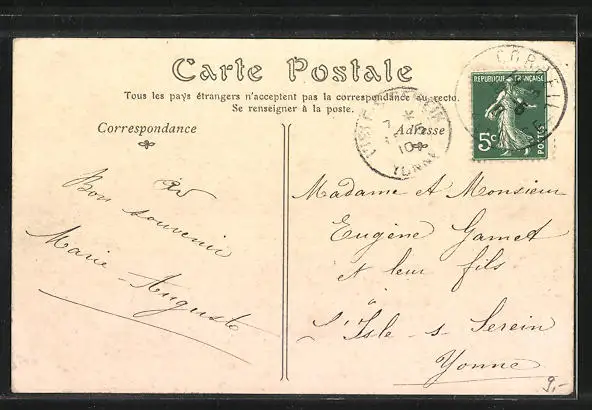 Carte Postale
Tous les pays étrangers n'acceptent pas la correspondance au recto.
Se renseigner à la poste.
Correspondance
Adresse
Bon souvenir
Marie Auguste
Madame et Monsieur
Eugène Gamet
et leur fils
à
l'Isle-s-Serein
Yonne
REPUBLIQUE FRANÇAISE
5c
POSTES
10
YONNE
9,-